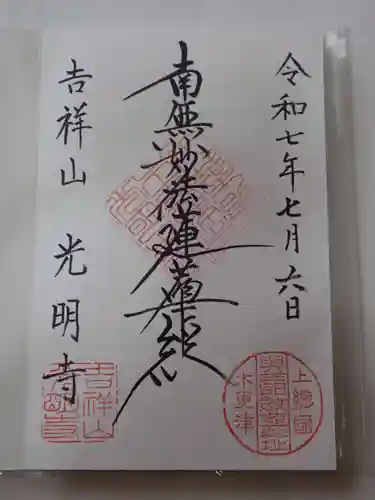 令和七年七月六日
南無妙法蓮華経
吉祥山 光明寺
上総国
木更津
吉祥山
光明寺